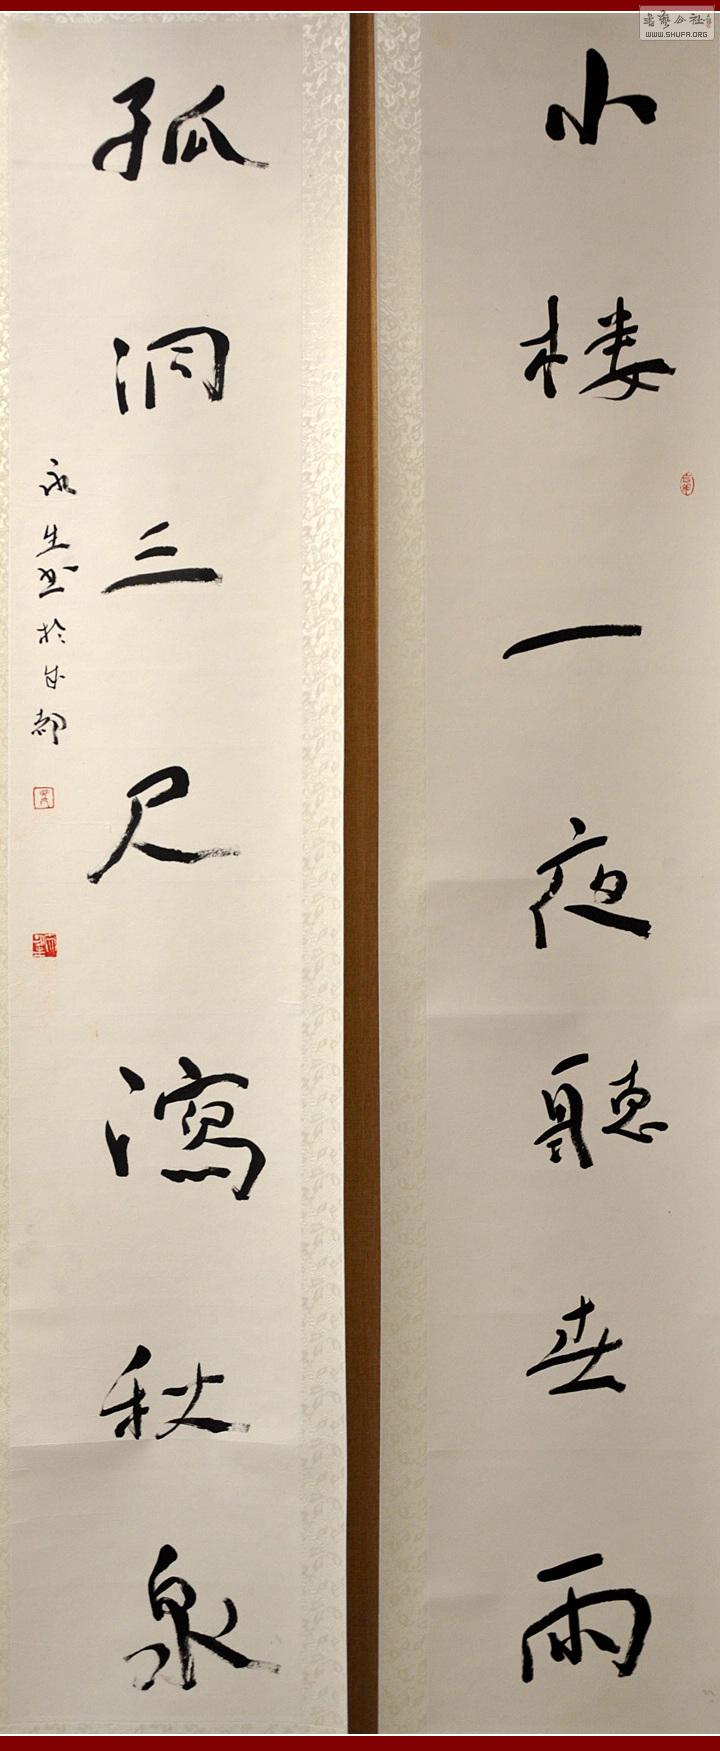 小楼一夜聽春雨
孤洞三尺瀉秋泉
永生书於成都
书艺公社
WWW.SHUFA.ORG